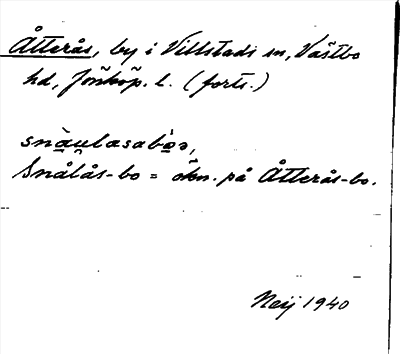 Åtterås, by i Villstads sn, Västbo
hd, Jönköp. l. (forts.)
snàu̯lasabòǝ,
Snålås-bo = ökn. på Åtterås-bo.
Neij 1940